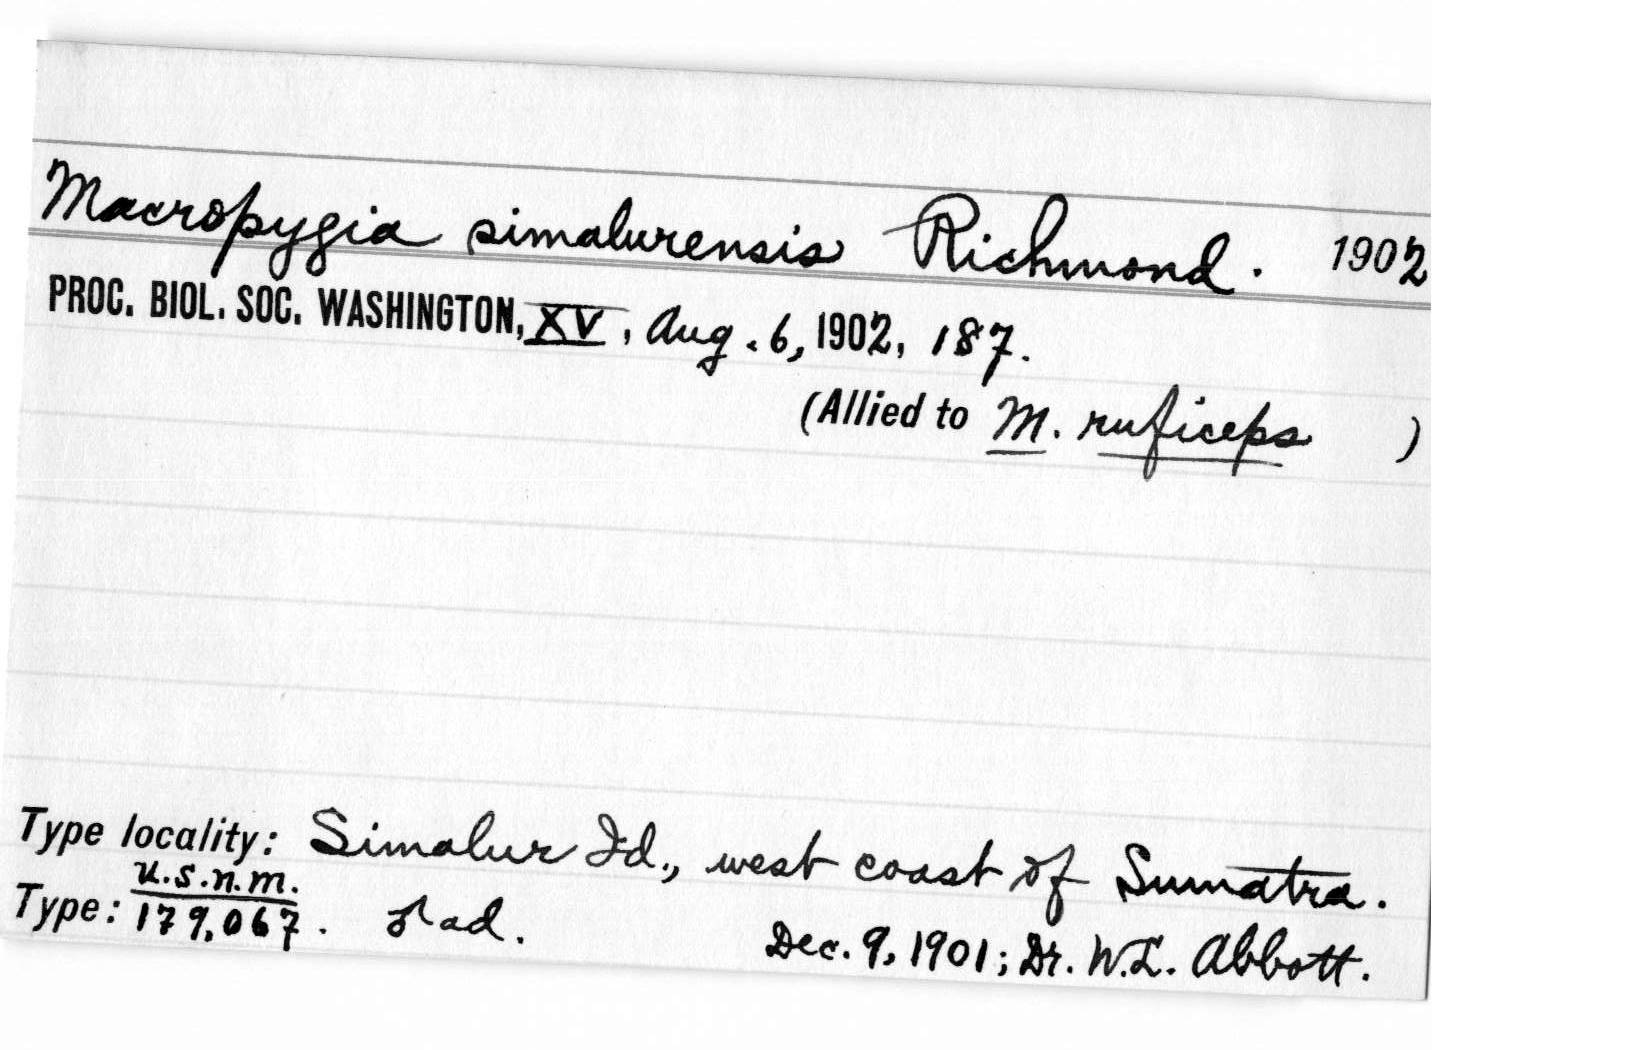 Macropygia simalurensis Richmond. 1902
PROC. BIOL. SOC. WASHINGTON, XV, Aug. 6, 1902, 187.
(Allied to M. ruficeps )
Type locality: Simalur Id., west coast of Sumatra.
Type: U.S.N.M. 179,067. ♂ ad. Dec. 9, 1901; Dr. W.L. Abbott.